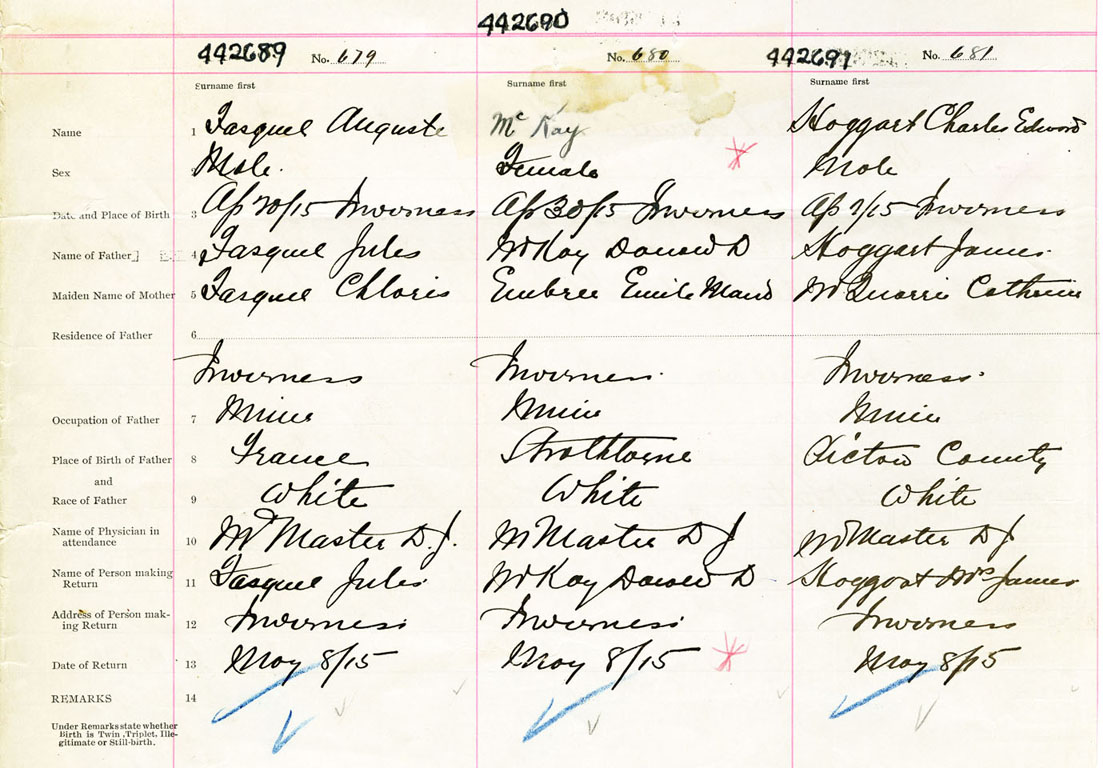 442690
442689 No. 679 No. 680 442691 No. 681
Surname first Surname first Surname first
Name 1 Jasquel Auguste McKay Hoggart Charles Edward
Sex Male. Female Male
Date and Place of Birth 3 Ap 20/15 Inverness Ap 30/15 Inverness Ap 1/15 Inverness
Name of Father 4 Jasquel Jules McKay Donald D Hoggart James.
Maiden Name of Mother 5 Jasquel Chloris Embree Emile Maud McQuarrie Catherine
Residence of Father 6
Inverness Inverness. Inverness.
Occupation of Father 7 Miner Miner Miner
Place of Birth of Father 8 France Strathlorne Pictou County
and
Race of Father 9 White White White
Name of Physician in
attendance 10 McMaster D. J. McMaster D J McMaster D J
Name of Person making
Return 11 Jasquel Jules McKay Donald D Hoggart Mrs James
Address of Person mak-
ing Return 12 Inverness Inverness Inverness
Date of Return 13 May 8/15 May 8/15 May 8/15
REMARKS 14
Under Remarks state whether
Birth is Twin, Triplet, Ille-
gitimate or Still-birth.